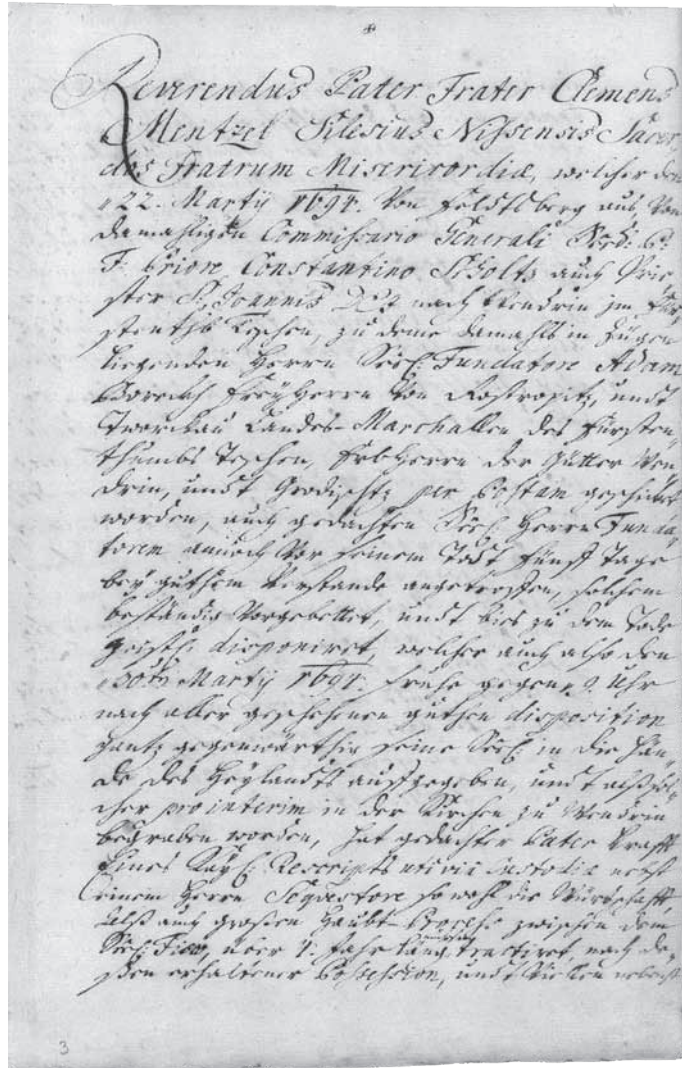 Reverendus Pater Frater Clemens
Mentzel Silesius Nissensis Sacer,
dos Fratrum Misericordiæ, welcher den
22. Martÿ 1694. Von Feldtsberg aus, Von
damahligen Commissario Generali
F. Priore Constantino Scholtz auch Prie,
ster S. Joannis Dei nach Wendrin im Für,
stenthb Teschen, zu deme damahls in Zügen
liegenden Herrn Seel: Fundatore Adam
Boreckh FreyHerrn Von Rostropitz, undt
Tworckau Landes-Marchallen des Fürsten,
thumbs Teschen, ErbHerrn der Gütter Wen,
drin, undt Grodischtz per Postam geschickt
worden, auch gedachten Seel: Herrn Funda,
torem annoch Vor seinem Todt fünff Tage
bey guthem Verstande angetroffen, solchem
beständig Vorgebettet, undt bies zu dem Tode
geistl: disponiret, welcher auch also den
30ten Martÿ 1694. frühe gegen 9. Uhr
nach aller geschehenen guthen disposition
gantz gegenwärthig seine Seel: in die Hän,
de des Heylandts auffgegeben, undt alß sol,
cher pro interim in der Kirchen zu Wendrin
begraben worden, hat gedachter Pater Krafft
Eines Kaÿ: Rescripts custodiæ nebst
einem Herrn Sequestore so wohl die Würtschafft,
Alß auch großen Haubt-Process zwischen dem
über Jahr lang tractiret, nach de,
ßen erhaltener Possession, undt nebenst
3